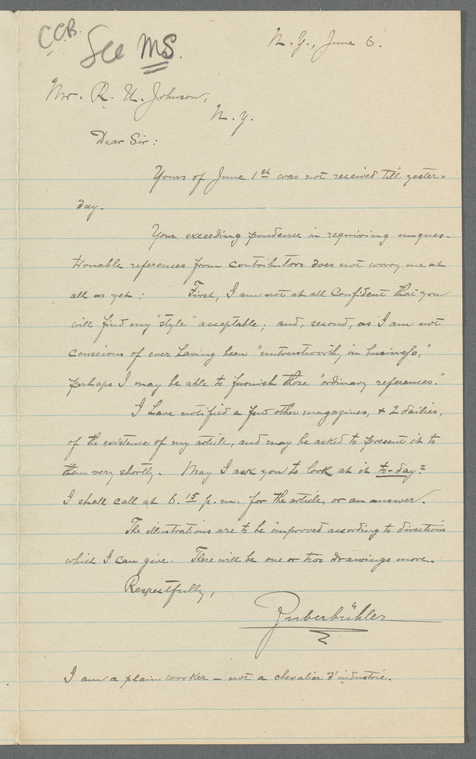 CCB.
See MS.
N. Y., June 6.
Mr. R. U. Johnson,
N. Y.
Dear Sir:
Yours of June 1st was not received till yester-
day.
Your exceeding prudence in requiring unques-
tionable references from contributors does not worry me at
all as yet: First, I am not at all confident that you
will find my "style" acceptable; and, second, as I am not
conscious of ever having been "untrustworthy in business,"
perhaps I may be able to furnish those "ordinary references."
I have notified a few other magazines, & 2 dailies,
of the existence of my article, and may be asked to present it to
them very shortly. May I ask you to look at it to-day?
I shall call at 6.15 p.m. for the article, or an answer.
The illustrations are to be improved according to directions
which I can give. There will be one or two drawings more.
Respectfully,
Zuberbühler
I am a plain worker – not a chevalier d'industrie.